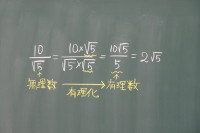 10/√5 = 10×√5/√5×√5 = 10√5/5 = 2√5
無理数 → 有理数
有理化